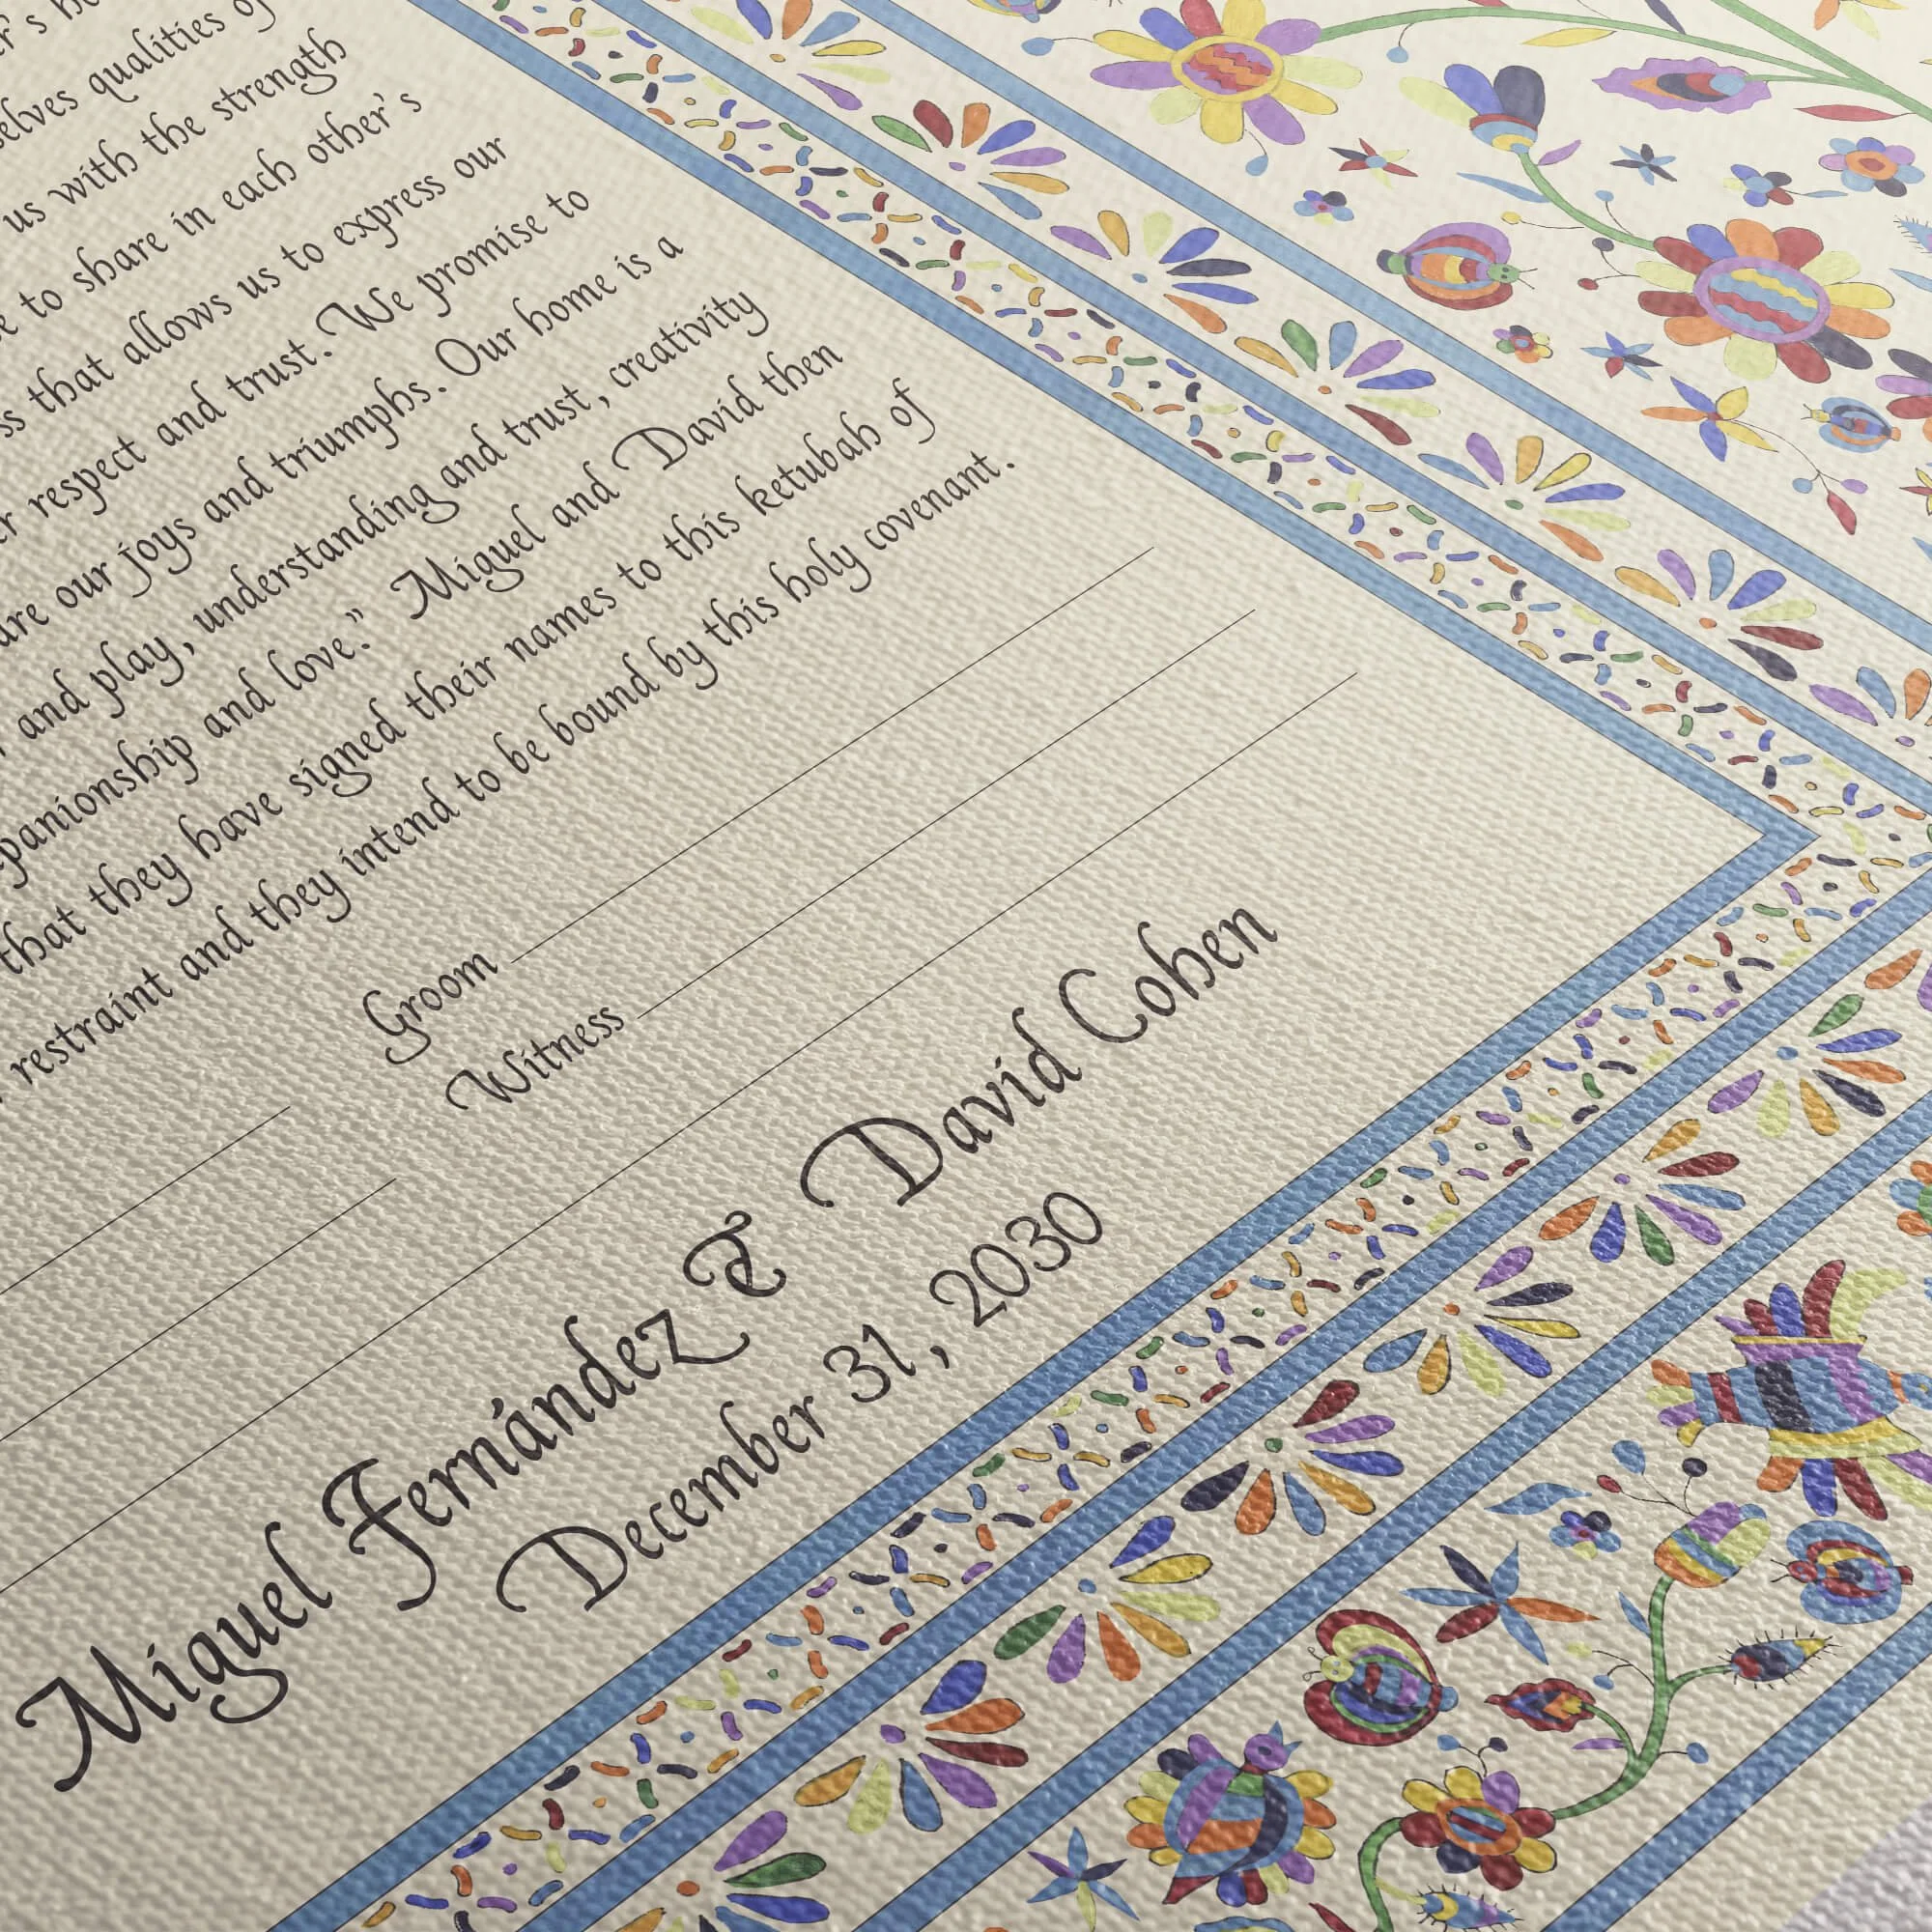 elves qualities of
us with the strength
to share in each other's
that allows us to express our
respect and trust. We promise to
our joys and triumphs. Our home is a
and play, understanding and trust, creativity
and love." Miguel and David then
that they have signed their names to this ketubah of
restraint and they intend to be bound by this holy covenant.
Groom
Witness
Miguel Fernández & David Cohen
December 31, 2030